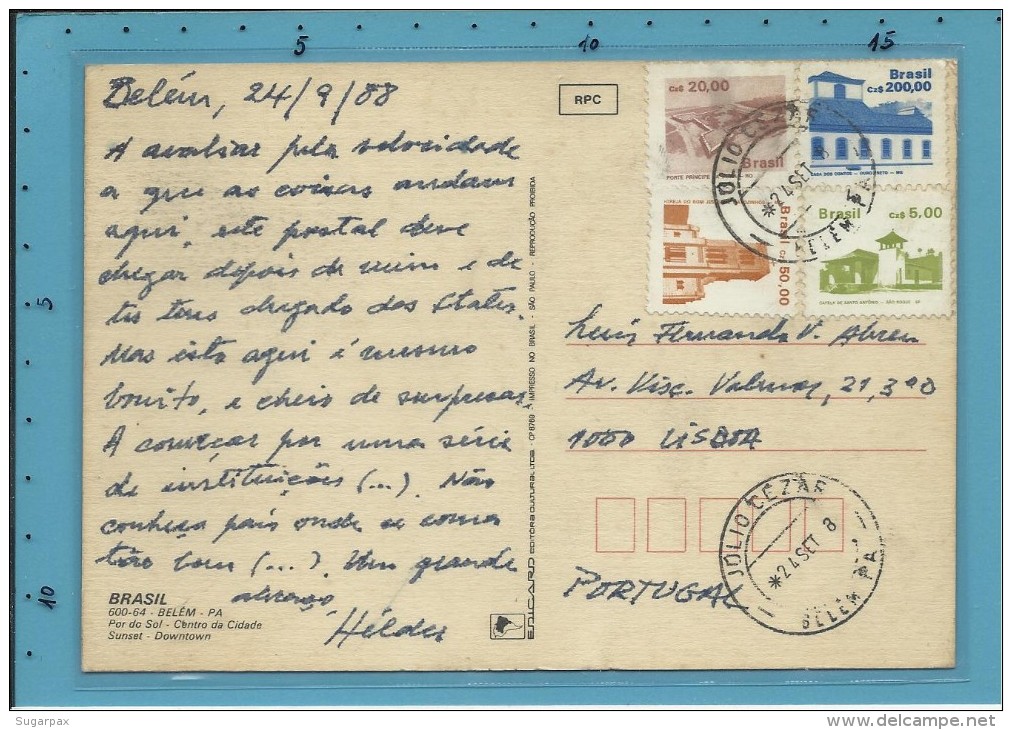 5
10
15
5
10
Belém, 24/9/88
A avaliar pela velocidade
a que as coisas andam
aqui, este postal deve
chegar depois de mim e de
tu teres chegado dos States.
Mas isto aqui é mesmo
bonito, e cheio de surpresas.
A começar por uma série
de instituições (...). Não
conheço país onde se coma
tão bem (...). Um grande
abraço,
Hélder
BRASIL
600-64 - BELÉM - PA
Por do Sol - Centro da Cidade
Sunset - Downtown
EDICARD EDITORA CULTURAL LTDA. - CP 6769 - IMPRESSO NO BRASIL - SÃO PAULO - REPRODUÇÃO PROIBIDA
RPC
Cz$ 20,00
Brasil
FORTE PRÍNCIPE
- RO
Brasil
Cz$ 200,00
CASA DOS CONTOS - OURO PRETO - MG
Brasil Cz$ 50,00
Brasil Cz$ 5,00
CAPELA DE SANTO ANTÔNIO - SÃO ROQUE - SP
JULIO CEZAR
*24 SET 8
BELÉM PA
Luís Fernando V. Abreu
Av. Visc. Valmor, 21, 3º D
1000 LISBOA
PORTUGAL
JULIO CEZAR
*24 SET 8
BELEM PA
Sugarpax
www.delcampe.net